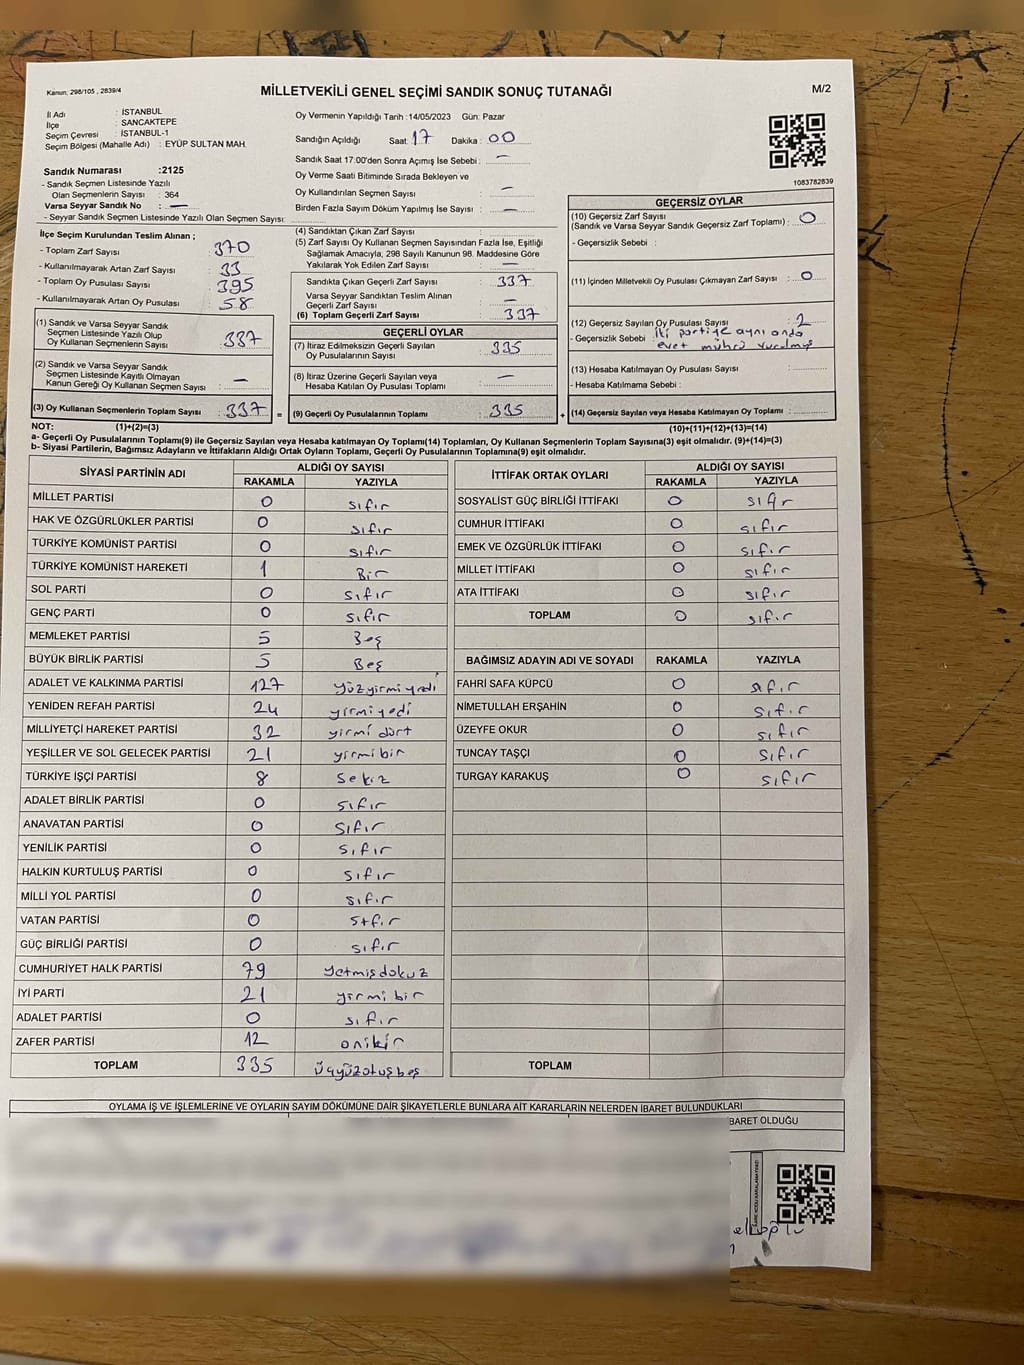 Kanun: 298/105 , 2839/4
MİLLETVEKİLİ GENEL SEÇİMİ SANDIK SONUÇ TUTANAĞI
M/2
İl Adı : İSTANBUL
İlçe : SANCAKTEPE
Seçim Çevresi : İSTANBUL-1
Seçim Bölgesi (Mahalle Adı) : EYÜP SULTAN MAH.
Sandık Numarası :2125
- Sandık Seçmen Listesinde Yazılı
Olan Seçmenlerin Sayısı : 364
Varsa Seyyar Sandık No : —
- Seyyar Sandık Seçmen Listesinde Yazılı Olan Seçmen Sayısı:
Oy Vermenin Yapıldığı Tarih :14/05/2023 Gün: Pazar
Sandığın Açıldığı Saat: 17 Dakika : 00
Sandık Saat 17:00'den Sonra Açımış İse Sebebi : —
Oy Verme Saati Bitiminde Sırada Bekleyen ve
Oy Kullandırılan Seçmen Sayısı : —
Birden Fazla Sayım Döküm Yapılmış İse Sayısı : —
1083782839
İlçe Seçim Kurulundan Teslim Alınan ;
- Toplam Zarf Sayısı : 370
- Kullanılmayarak Artan Zarf Sayısı : 33
- Toplam Oy Pusulası Sayısı : 395
- Kullanılmayarak Artan Oy Pusulası : 58
(1) Sandık ve Varsa Seyyar Sandık
Seçmen Listesinde Yazılı Olup
Oy Kullanan Seçmenlerin Sayısı : 337
(2) Sandık ve Varsa Seyyar Sandık
Seçmen Listesinde Kayıtlı Olmayan
Kanun Gereği Oy Kullanan Seçmen Sayısı : —
(3) Oy Kullanan Seçmenlerin Toplam Sayısı : 337 =
(4) Sandıktan Çıkan Zarf Sayısı :
(5) Zarf Sayısı Oy Kullanan Seçmen Sayısından Fazla İse, Eşitliği
Sağlamak Amacıyla, 298 Sayılı Kanunun 98. Maddesine Göre
Yakılarak Yok Edilen Zarf Sayısı : —
Sandıkta Çıkan Geçerli Zarf Sayısı : 337
Varsa Seyyar Sandıktan Teslim Alınan
Geçerli Zarf Sayısı : —
(6) Toplam Geçerli Zarf Sayısı : 337
GEÇERLİ OYLAR
(7) İtiraz Edilmeksizin Geçerli Sayılan
Oy Pusulalarının Sayısı : 335
(8) İtiraz Üzerine Geçerli Sayılan veya
Hesaba Katılan Oy Pusulası Toplamı : —
(9) Geçerli Oy Pusulalarının Toplamı : 335 +
GEÇERSİZ OYLAR
(10) Geçersiz Zarf Sayısı
(Sandık ve Varsa Seyyar Sandık Geçersiz Zarf Toplamı) : 0
- Geçersizlik Sebebi :
(11) İçinden Milletvekili Oy Pusulası Çıkmayan Zarf Sayısı : 0
(12) Geçersiz Sayılan Oy Pusulası Sayısı : 2
- Geçersizlik Sebebi : iki partiye aynı anda
evet mührü vurulmuş
(13) Hesaba Katılmayan Oy Pusulası Sayısı :
- Hesaba Katılmama Sebebi :
(14) Geçersiz Sayılan veya Hesaba Katılmayan Oy Toplamı :
NOT: (1)+(2)=(3) (10)+(11)+(12)+(13)=(14)
a- Geçerli Oy Pusulalarının Toplamı(9) ile Geçersiz Sayılan veya Hesaba katılmayan Oy Toplamı(14) Toplamları, Oy Kullanan Seçmenlerin Toplam Sayısına(3) eşit olmalıdır. (9)+(14)=(3)
b- Siyasi Partilerin, Bağımsız Adayların ve İttifakların Aldığı Ortak Oyların Toplamı, Geçerli Oy Pusulalarının Toplamına(9) eşit olmalıdır.
SİYASİ PARTİNİN ADI ALDIĞI OY SAYISI
RAKAMLA YAZIYLA
MİLLET PARTİSİ 0 sıfır
HAK VE ÖZGÜRLÜKLER PARTİSİ 0 sıfır
TÜRKİYE KOMÜNİST PARTİSİ 0 sıfır
TÜRKİYE KOMÜNİST HAREKETİ 1 Bir
SOL PARTİ 0 sıfır
GENÇ PARTİ 0 sıfır
MEMLEKET PARTİSİ 5 Beş
BÜYÜK BİRLİK PARTİSİ 5 Beş
ADALET VE KALKINMA PARTİSİ 127 yüzyirmiyedi
YENİDEN REFAH PARTİSİ 24 yirmiyedi
MİLLİYETÇİ HAREKET PARTİSİ 32 yirmi dört
YEŞİLLER VE SOL GELECEK PARTİSİ 21 yirmibir
TÜRKİYE İŞÇİ PARTİSİ 8 Sekiz
ADALET BİRLİK PARTİSİ 0 sıfır
ANAVATAN PARTİSİ 0 sıfır
YENİLİK PARTİSİ 0 sıfır
HALKIN KURTULUŞ PARTİSİ 0 sıfır
MİLLİ YOL PARTİSİ 0 sıfır
VATAN PARTİSİ 0 sıfır
GÜÇ BİRLİĞİ PARTİSİ 0 sıfır
CUMHURİYET HALK PARTİSİ 79 yetmişdokuz
İYİ PARTİ 21 yirmibir
ADALET PARTİSİ 0 sıfır
ZAFER PARTİSİ 12 onikir
TOPLAM 335 üçyüzotuşbeş
İTTİFAK ORTAK OYLARI ALDIĞI OY SAYISI
RAKAMLA YAZIYLA
SOSYALİST GÜÇ BİRLİĞİ İTTİFAKI 0 sıfır
CUMHUR İTTİFAKI 0 sıfır
EMEK VE ÖZGÜRLÜK İTTİFAKI 0 sıfır
MİLLET İTTİFAKI 0 sıfır
ATA İTTİFAKI 0 sıfır
TOPLAM 0 sıfır
BAĞIMSIZ ADAYIN ADI VE SOYADI RAKAMLA YAZIYLA
FAHRİ SAFA KÜPCÜ 0 sıfır
NİMETULLAH ERŞAHİN 0 sıfır
ÜZEYFE OKUR 0 sıfır
TUNCAY TAŞÇI 0 sıfır
TURGAY KARAKUŞ 0 sıfır
TOPLAM
OYLAMA İŞ VE İŞLEMLERİNE VE OYLARIN SAYIM DÖKÜMÜNE DAİR ŞİKAYETLERLE BUNLARA AİT KARARLARIN NELERDEN İBARET BULUNDUKLARI
BARET OLDUĞU